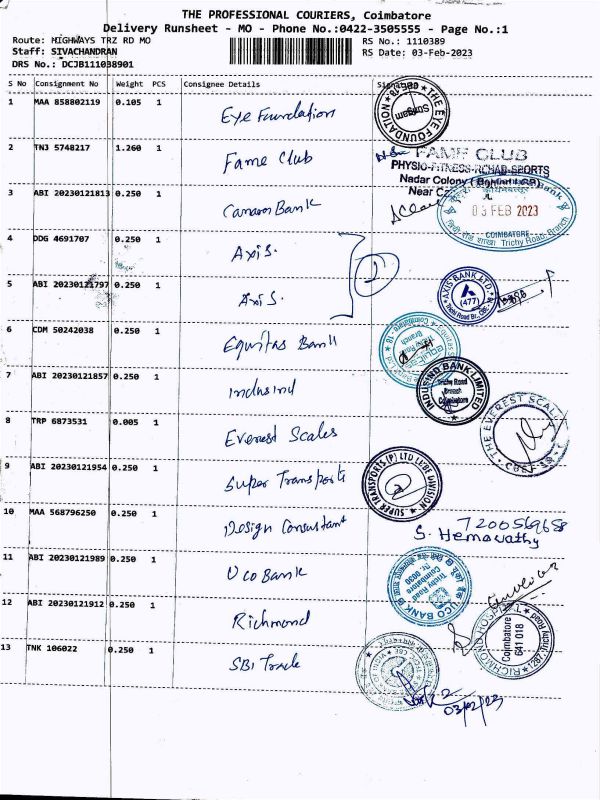 THE PROFESSIONAL COURIERS, Coimbatore
Delivery Runsheet - MO - Phone No.:0422-3505555 - Page No.:1
Route: HIGHWAYS TRZ RD MO RS No.: 1110389
Staff: SIVACHANDRAN RS Date: 03-Feb-2023
DRS No.: DCJB111038901
S No Consignment No Weight PCS Consignee Details
1 MAA 858802119 0.105 1 Eye Foundation
THE EYE FOUNDATION
Sungam
2 TN3 5748217 1.260 1 Fame Club
FAME CLUB
PHYSIO-FITNESS-REHAB-SPORTS
Nadar Colony
3 ABI 20230121813 0.250 1 Canara Bank
03 FEB 2023
COIMBATORE
Trichy Road Branch
4 DDG 4691707 0.250 1 Axis.
5 ABI 20230121797 0.250 1 Axis.
AXIS BANK LTD.
(477)
6 CDM 50242038 0.250 1 Equitas Bank
7 ABI 20230121857 0.250 1 Indusind
INDUSIND BANK LIMITED
Trichy Road
Branch
Coimbatore
8 TRP 6873531 0.005 1 Everest Scales
THE EVEREST SCALES
9 ABI 20230121954 0.250 1 Super Transports
SUPER TRANSPORTS (P) LTD
DIVISION
10 MAA 568796250 0.250 1 Design Consultant
7200569658
S. Hemavathy
11 ABI 20230121989 0.250 1 Uco Bank
UCO BANK
Trichy Road
Coimbatore
12 ABI 20230121912 0.250 1 Richmond
RICHMOND HOSPITAL
Coimbatore
641 018
1287, Trichy Road
13 TNK 106022 0.250 1 SBI Trade
03/02/23